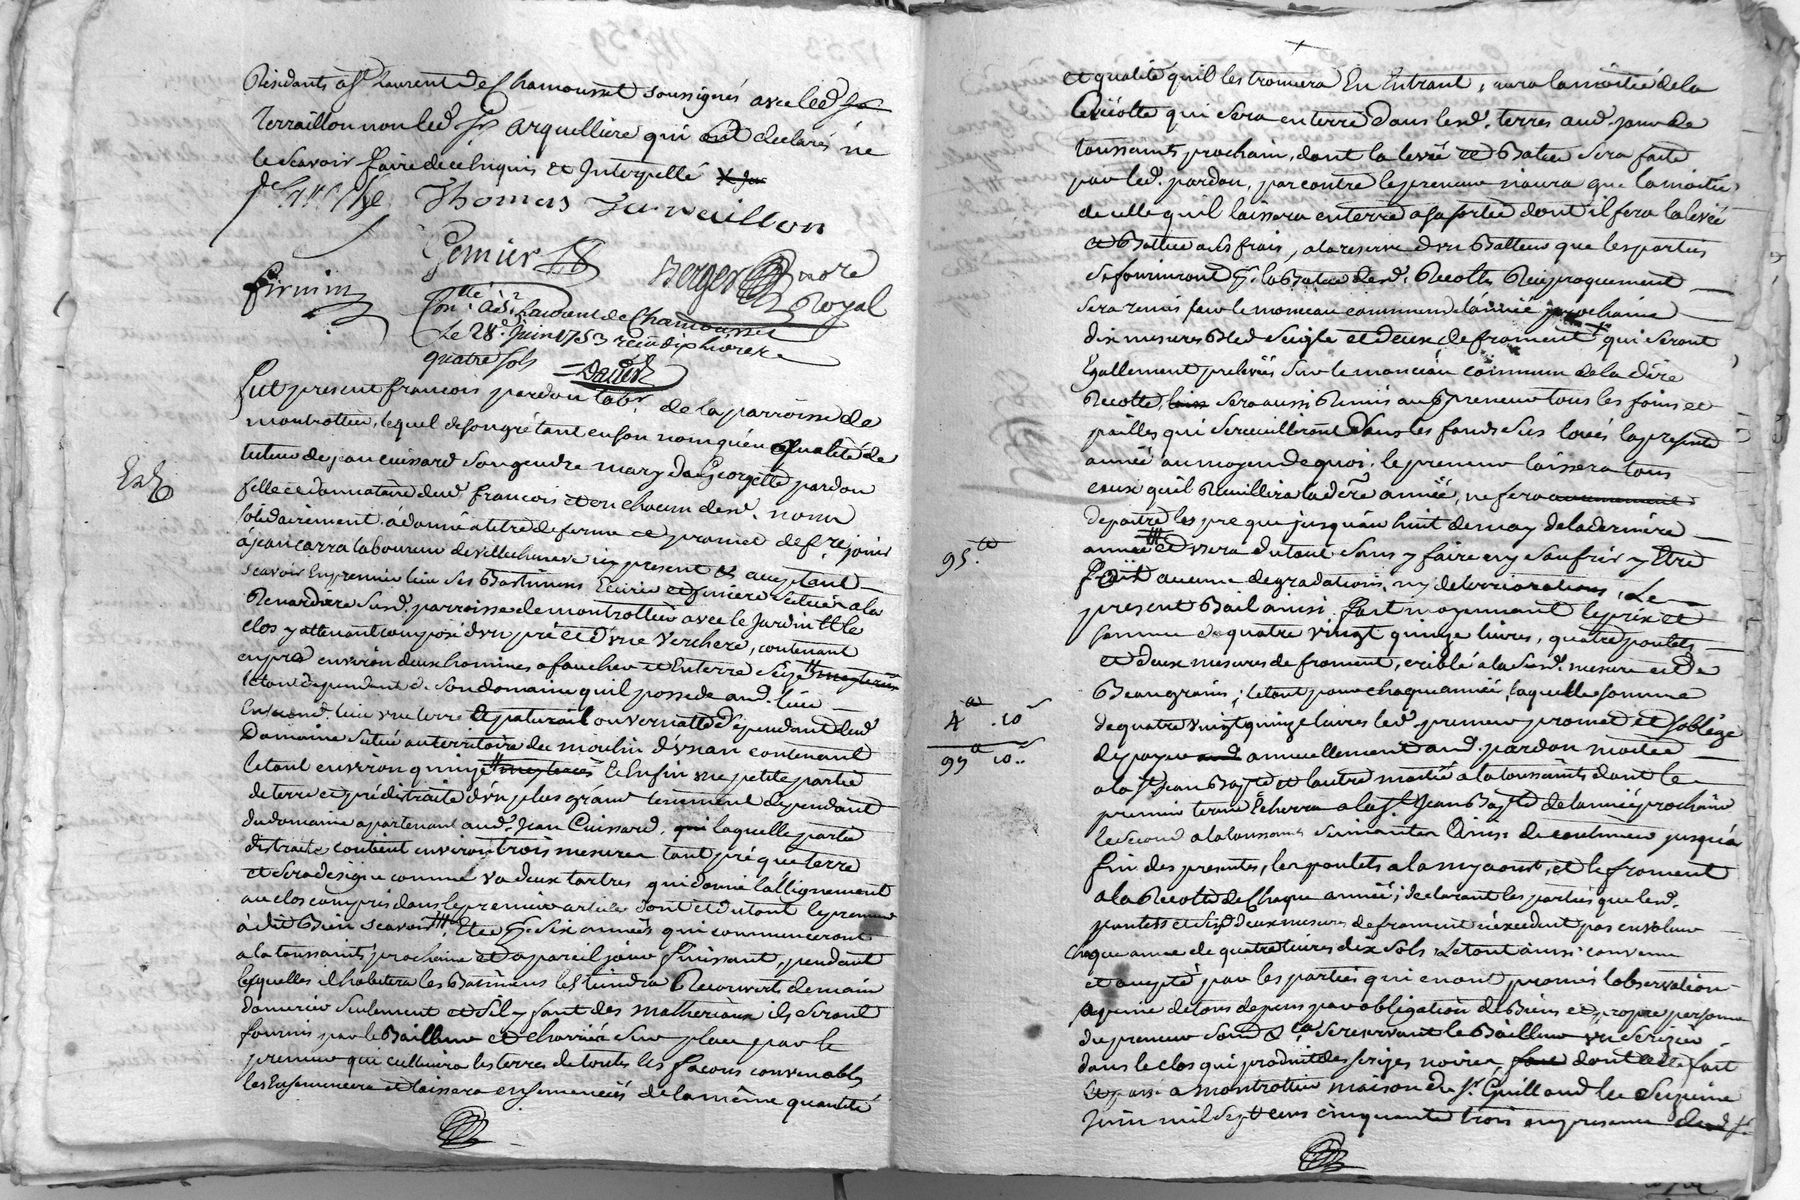 Residants a St Laurent de Chamousset soussignés avec led. Sr
Terraillon non led. Sr Arquilliere qui ont declarés né
le scavoir faire de ce Enquis et Interpellé
Thomas Terraillon
Gemier Berger nore
firmin Royal
Conllé a St Laurent de Chamousset
Le 28e Juin 1753 reçu dix huit
quatre sols
Fut present francois pardon labr de la parroisse de
montrottier, lequel de son gré tant en son nom qu'en qualité de
tuteur de jean Cuissard son gendre mary de Georgette pardon
fille et donnataire dud. francois et en chacun desd. noms
solidairement a donné a titre de ferme et promet defre jouir
a jean carra laboureur de villecheneve icy present et acceptant
scavoir En premier lieu ses Bastimens Ecurie et feniere scitués a la
Renardiere susd. parroisse de montrottier avec le Jardin et le
clos y attenant composé d'un pré et d'une verchere, contenant
en pré environ deux hommes a faucher et En terre Seize meyterées
le tout dependant de son domaine qu'il possede aud. lieu
En second lieu une terre et paturail ou vernatte dependant dud.
Domaine scitué au territoire du moulin d'vnan contenant
le tout environ quinze meyterées et Enfin une petite partie
de terre et pré distraite d'un plus grand tenement dependant
du domaine apartenant aud. Jean Cuissard, laquelle partie
distraite contient environ trois mesures tant pré que terre
et sera designée comme va deux tartres qui donne l'allignement
au clos compris dans le premier article dont et du tout le preneur
a dit Bien scavoir Et ce pr. six années qui commenceront
a la toussaints prochaine et a pareil jour finissant, pendant
lesquelles il habitera les Batimens les tiendra Recouverts de main
d'ouvrier seulement et s'il y faut des matheriaux ils seront
fournis par le Bailleur et charriés sur place par le
preneur qui cultivera les terres de toutes les facons convenables
les Ensemencera et laissera ensemencées de la même quantité
et qualité qu'il les trouvera En Entrant, aura la moitié de la
Recolte qui sera en terre dans lesd. terres aud. jour de
toussaints prochain, dont la levée et Batue sera faite
par led. pardon, par contre le preneur n'aura que la moitié
de celle qu'il laissera en terre a sa sortie dont il fera la levée
et Battue a ses frais, a la reserve d'un Batteur que les parties
se fourniront pr. la Batue desd. Recoltes Reciproquement
sera remis sur le monceau commun de l'année prochaine
dix mesures Bled seigle et deux de froment qui seront
Egallement prelevées sur le monceau commun de la dere
Recolte, sera aussi Remis au preneur tous les foins et
pailles qui se recuilleront dans les fonds sus loués la presente
année au moyen de quoi le preneur laissera tous
ceux qu'il Recuillira la dere année, ne fera
depaitre les prés que jusqu'au huit de may de la derniere
année et usera du tout sans y faire ny soufrir y Etre
fait aucune degradations ny deteriorations. Le
95.tt
present Bail ainsi fait moyennant le prix et
somme de quatre vingt quinze livres, quatre poulets
et deux mesures de froment, criblé a la susd. mesure et de
Beau grain, le tout pour chaque année, laquelle somme
4tt. 10s
de quatre vingt quinze livres led. preneur promet et s'oblige
99tt 10s
de payer annuellement aud. pardon moitié
a la St Jean Bapte et l'autre moitié a la toussaints dont le
premier terme Echerra a la St Jean Bapte de l'année prochaine
le second a la toussaints suivante Ainsi de continuer jusqu'a
fin des presentes, les poulets a la my aoust, et le froment
a la Recolte de Chaque année, declarant les parties que lesd.
poulets et lesd. deux mesures de froment n'excedent pas en valeur
chaque année de quatre livres dix sols. Le tout ainsi convenu
et accepté par les parties qui en ont promis l'observation
a peine de tous depens par obligation de Biens et propre personne
du preneur se reservant le Bailleur un Serizier
dans le clos qui produit des serizes noires, dont acte fait
Et passé a montrottier maison de Sr Guilland le seizieme
Juin mil sept cens cinquante trois en presence